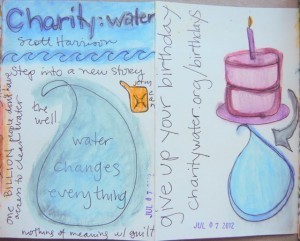 Charity: water
Scott Harrison
Step into a new story
the
well
one BILLION people don't have
access to clean water
water
changes
everything
nothing of meaning w/ guilt
JUL 07
give up your birthday
charitywater.org/birthdays
JUL 07 2012